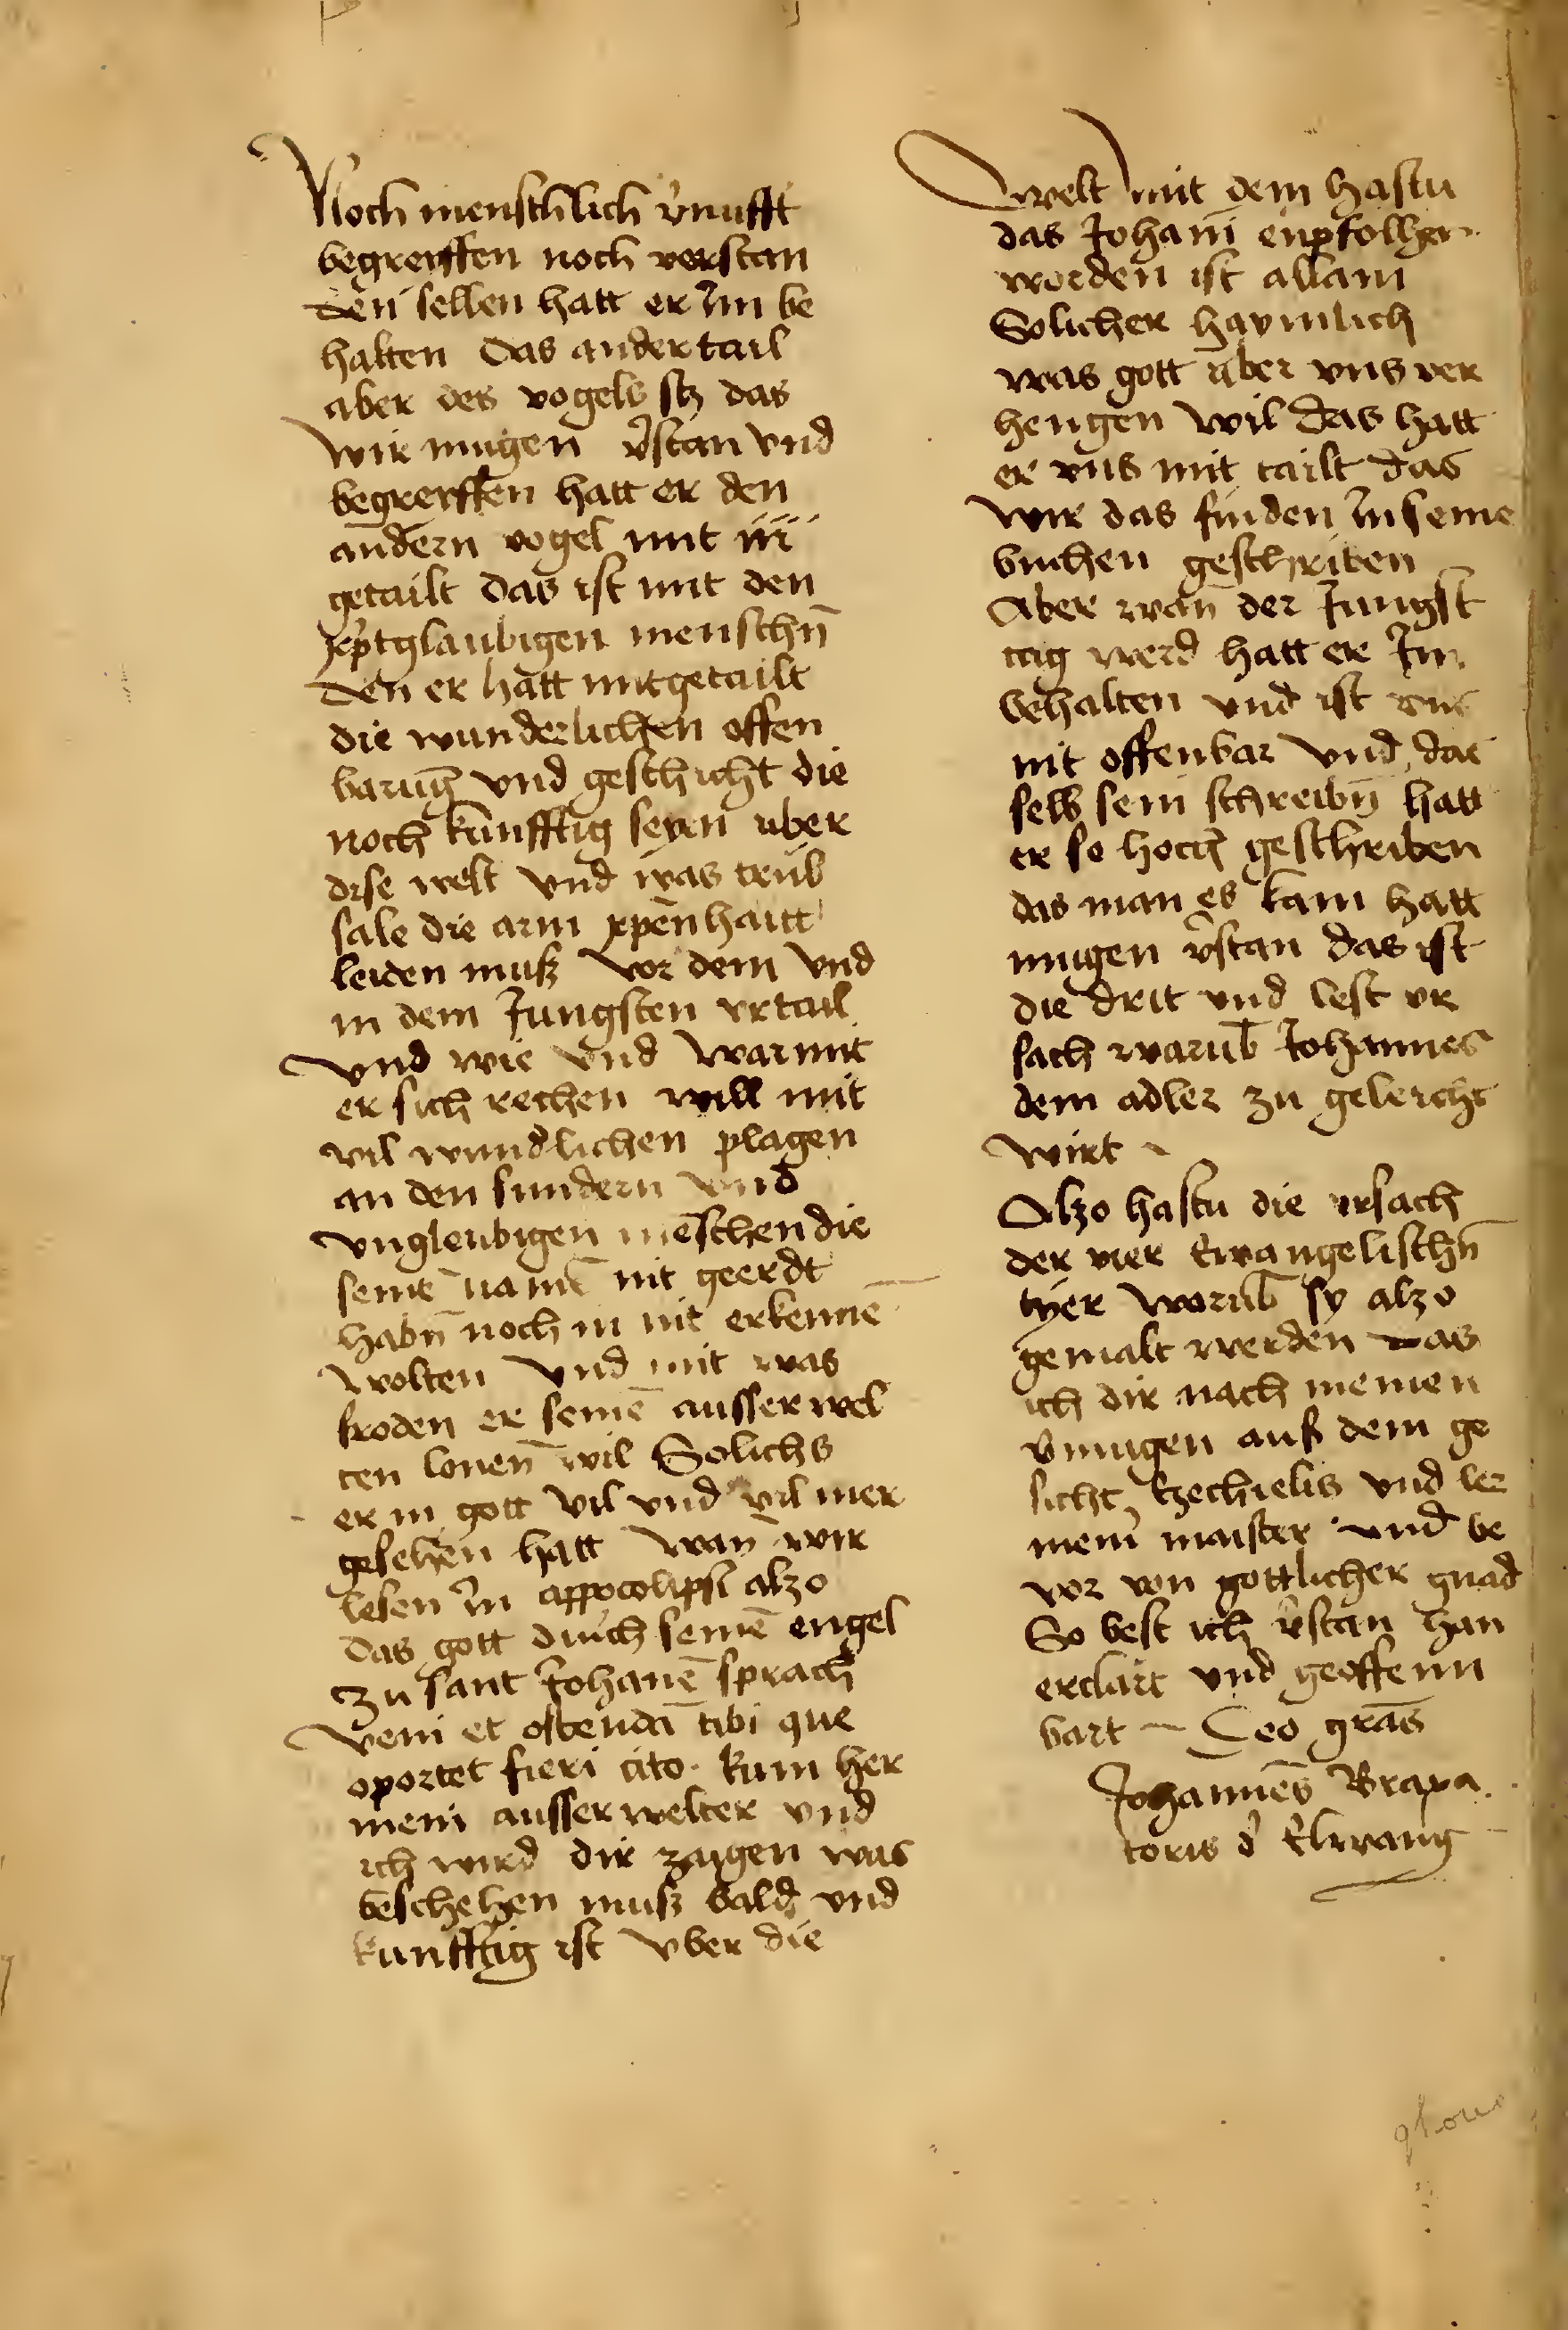 Noch menschlich v̉nufft
begreiffen noch verstan
den sellen hatt er im be
halten das ander tail
aber des vogels sz das
wir mugen v̉stan vnd
begreiffen hatt er den
andern vogel mit iii
getailt das ist mit den
xp̄tglaubigen menschn̄
den er hatt mitgetailt
die wunderlichen offen
barung vnd geschicht die
noch kunfftig seyen uber
dise welt vnd was trub
sale die arm xp̄enhaitt
leiden muß vor dem vnd
in dem Jungsten vrtail
vnd wie vnd warmit
er sich rechen will mit
vil wund̉lichen plagen
an den sundern vnd
vngleubigen mēschen die
seinē namē nit geerdt
habn̄ noch in nit erkennē
wolten vnd mit was
froden er seinē ausser wel
ten lonen̄ wil Solichs
er in gott vil vnd vil mer
gesehen hatt wan̄ wir
lesen in appocolipsi alzo
das gott durch seinē engel
zu sant Johanē sprach
veni et ostendā tibi que
oportet fieri cito. kum her
mein ausser welter vnd
ich wird dir zaigen was
beschehen muß bald vnd
kunfftig ist vber die
welt mit dem hastu
das Johani enpfolhen
worden ist allain
Solicher haymlich
was gott uber vns ver
hengen wil das hatt
er vns mit tailt das
wir das finden in seinē
buchen geschriben
Aber wan̄ der Jungst
tag werd hatt er Im
behalten vnd ist vns
nit offenbar vnd das
selb sein schreibn̄ hatt
er so hoch geschriben
das man es kam hatt
mugen v̉stan das ist
die drit vnd lest vr
sach warūb Johannes
dem adler zu geleicht
wirt ~
Alzo hastu die vrsach
der vier Ewangelischn̄
tyer worūb sy alzo
gemalt werden das
ich dir nach meinen
v̉mugen auß dem ge
sicht Ezechielis vnd ler
meinr̉ maister vnd be
vor von gottlicher gnad
So best ich v̉stan han
erclart vnd geoffenn
bart ~ Deo grās
Johannēs Braxa
toris d̉ Elwang